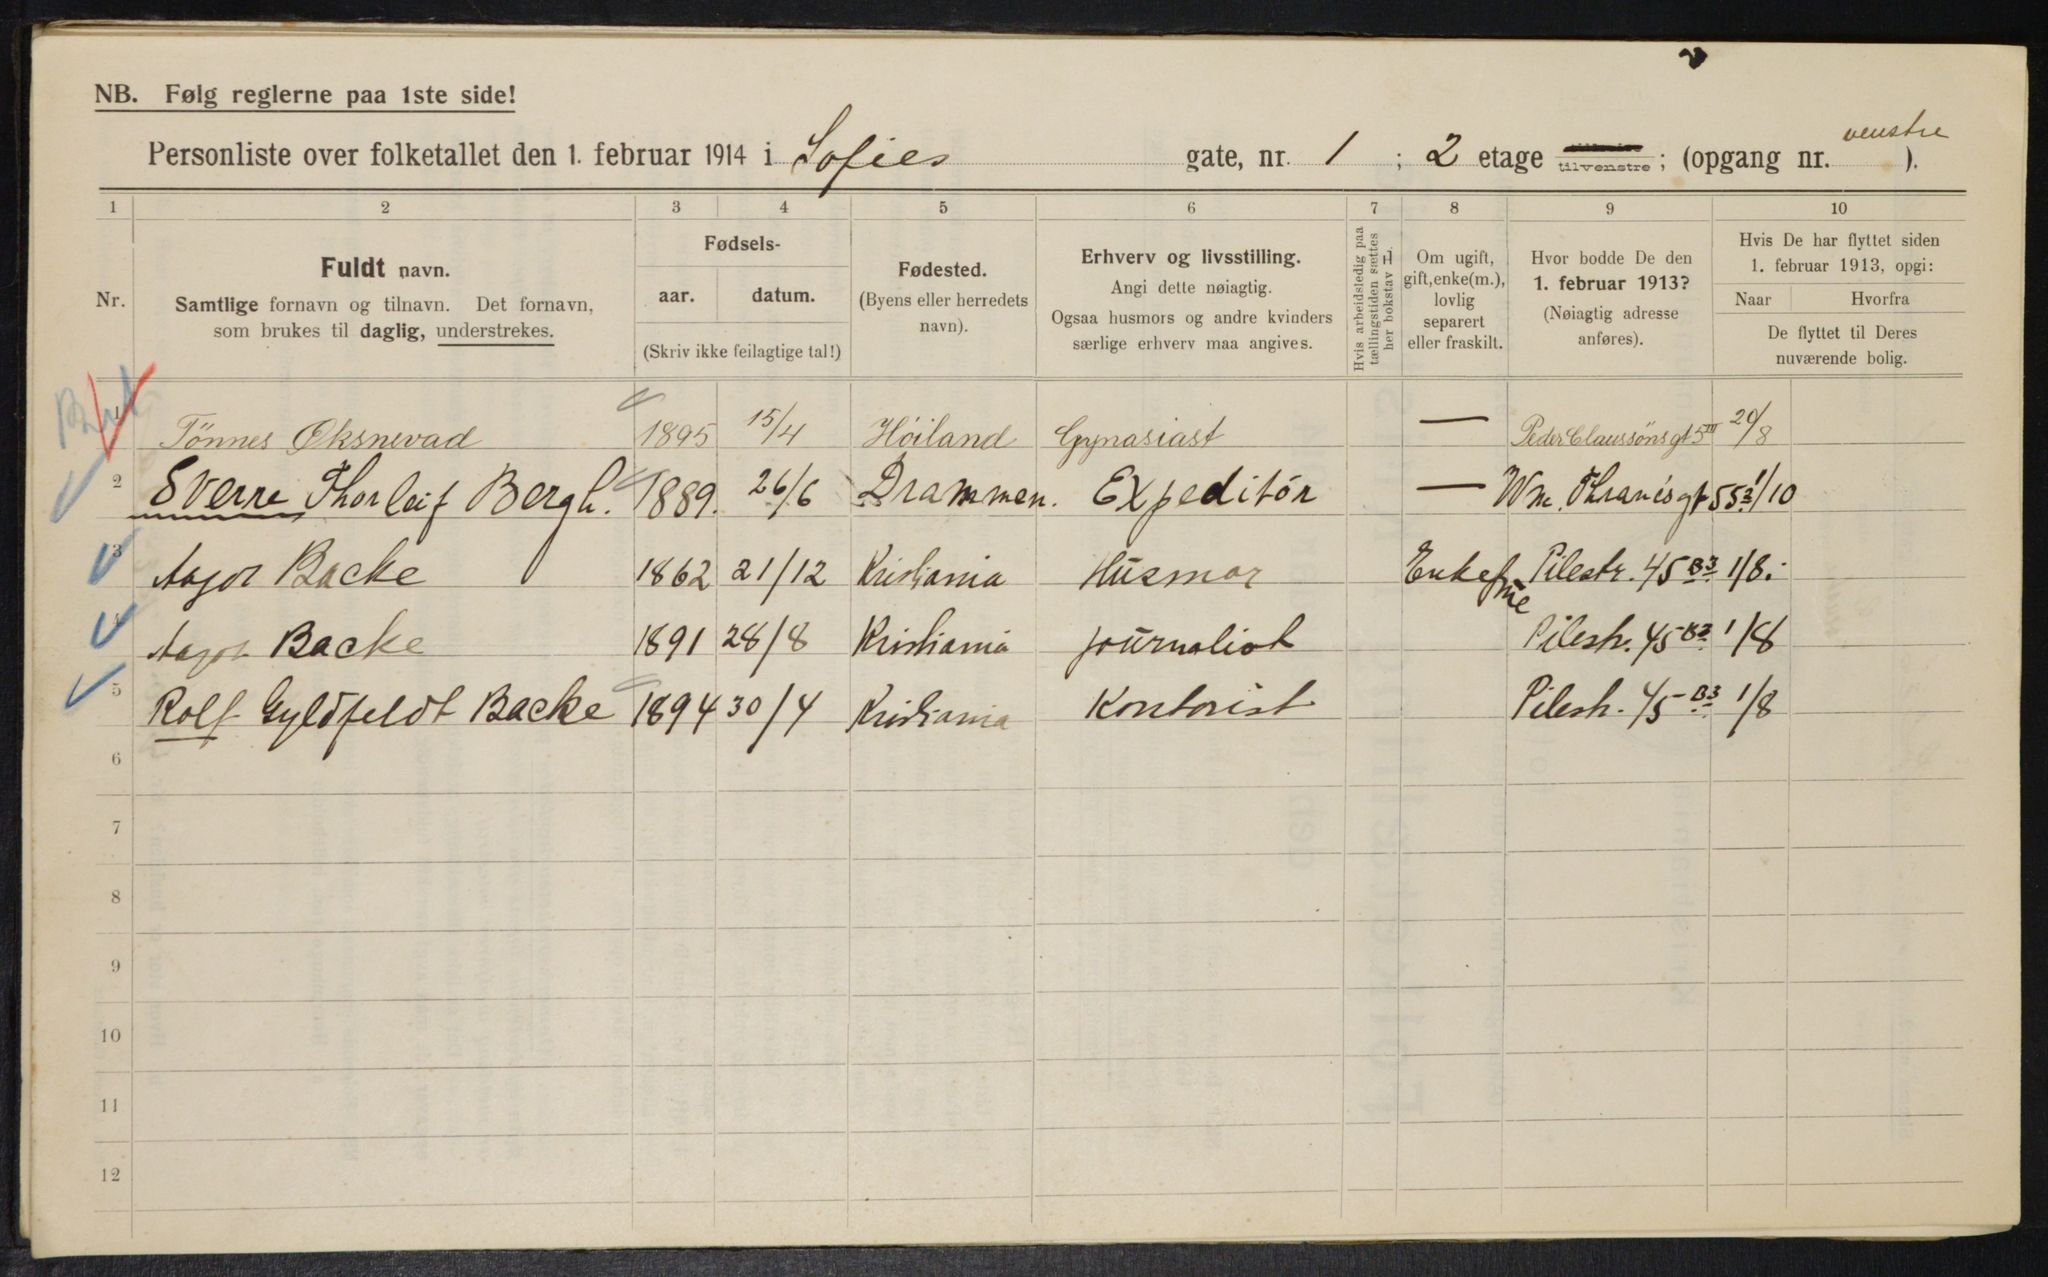 NB. Følg reglerne paa 1ste side!
venstre
Personliste over folketallet den 1. februar 1914 i Sofies gate, nr. 1 ; 2 etage tilvenstre ; (opgang nr. ).
1 2 3 4 5 6 7 8 9 10
Nr.
Fuldt navn.
Samtlige fornavn og tilnavn. Det fornavn,
som brukes til daglig, understrekes.
Fødsels-
aar. datum.
(Skriv ikke feilagtige tal!)
Fødested.
(Byens eller herredets
navn).
Erhverv og livsstilling.
Angi dette nøiagtig.
Ogsaa husmors og andre kvinders
særlige erhverv maa angives.
Hvis arbeidsledig paa
tællingstiden sættes
her bokstav L.
Om ugift,
gift, enke(m.),
lovlig
separert
eller fraskilt.
Hvor bodde De den
1. februar 1913?
(Nøiagtig adresse
anføres).
Hvis De har flyttet siden
1. februar 1913, opgi:
Naar Hvorfra
De flyttet til Deres
nuværende bolig.
1 Tönnes Oksnevad 1895 15/4 Höiland Gynasiast — Peder Claussöns gt 5 III 20/8
2 Sverre Thorleif Bergh. 1889. 26/6 Drammen. Expeditör — Wm. Thranés gt 55 3 1/10
3 Aagot Backe 1862 21/12 Kristiania Husmor Enkefrue Pilestr. 45 B3 1/8.
4 Aagot Backe 1891 28/8 Kristiania journalist Pilestr. 45 B3 1/8
5 Rolf Gyldfeldt Backe 1894 30/4 Kristiania Kontorist Pilestr. 45 B3 1/8
6
7
8
9
10
11
12